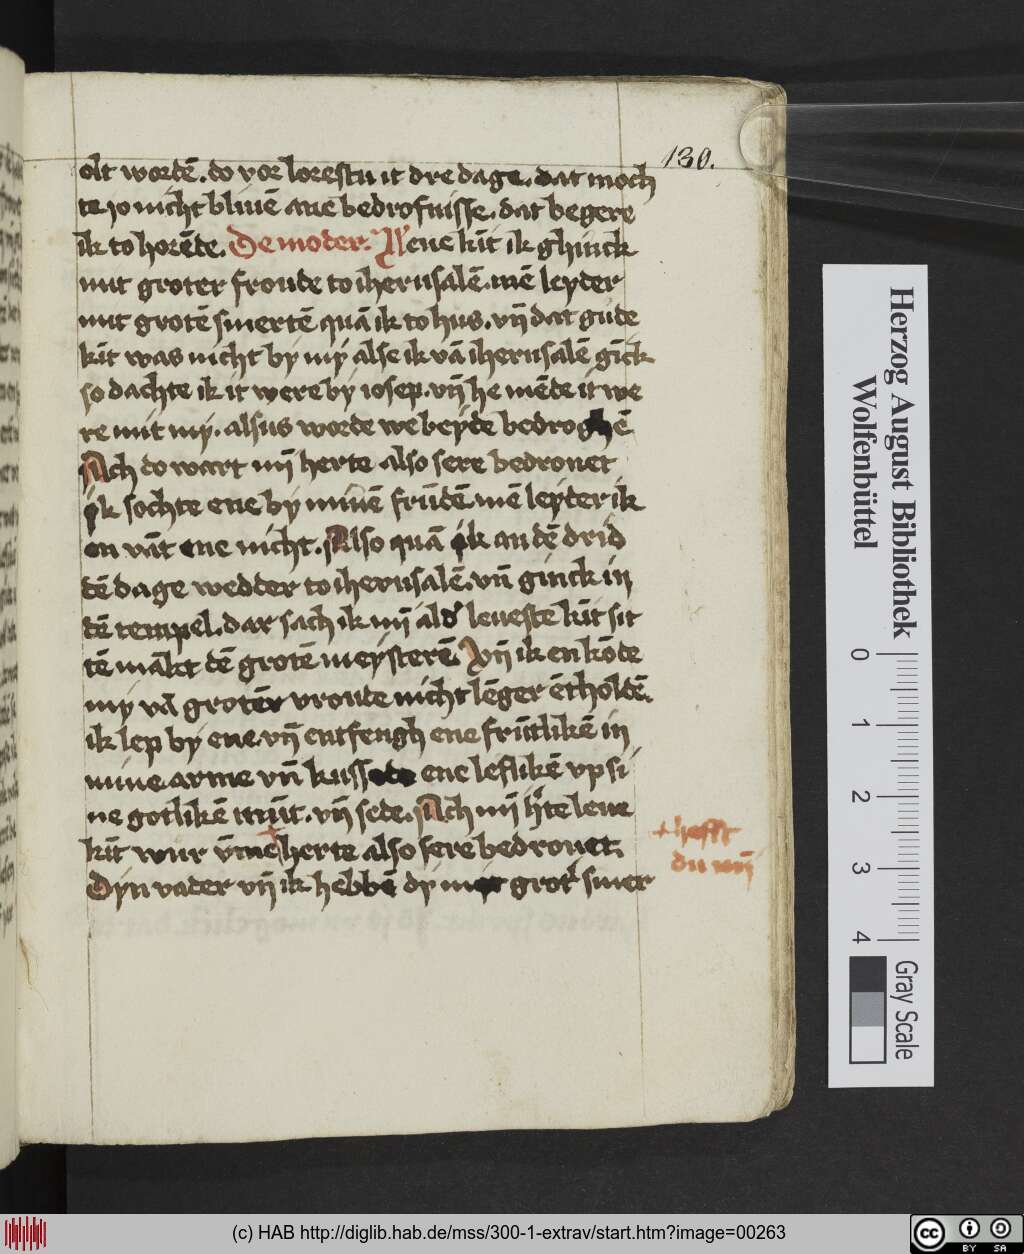 130.
olt wordē. do vor lorestu it dre dage. dat moch
te jo nicht bliuē ane bedrofnisse. dat begere
ik to horēde. De moder. Leue kīt ik ghinck
mit groter froude to iherusalē. mē leyder
mit grotē smertē quā ik to hus. vn̄ dat gude
kīt was nicht by my alse ik vā iherusalē gīck
so dachte ik it were by iosep. vn̄ he mēde it we
re mit my. alsus worde we beyde bedroghē
Ach do wart mȳ herte also sere bedrouet
ik sochte ene by minē frūdē mē leyder ik
en vāt ene nicht. Also quā ik an dē drid
dē dage wedder to iherusalē. vn̄ ginck in
dē tempel. dar sach ik mȳ ald leueste kīt sit
tē mākt dē grotē meysterē. Vn̄ ik en kōde
my vā groter vroude nicht lēger ētholdē.
ik lep by ene. vn̄ entfengh ene frūtlikē in
mine arme vn̄ kussede ene leflikē vp si
ne gotlikē mūt. vn̄ sede. Ach mȳ hte leue
kīt wur v̄me herte also sere bedrouet.
Dyn vader vn̄ ik hebbē dy met grot smer
+ hefft
du mȳ
Herzog August Bibliothek
Wolfenbüttel
0 1 2 3 4
Gray Scale
(c) HAB http://diglib.hab.de/mss/300-1-extrav/start.htm?image=00263
cc BY SA